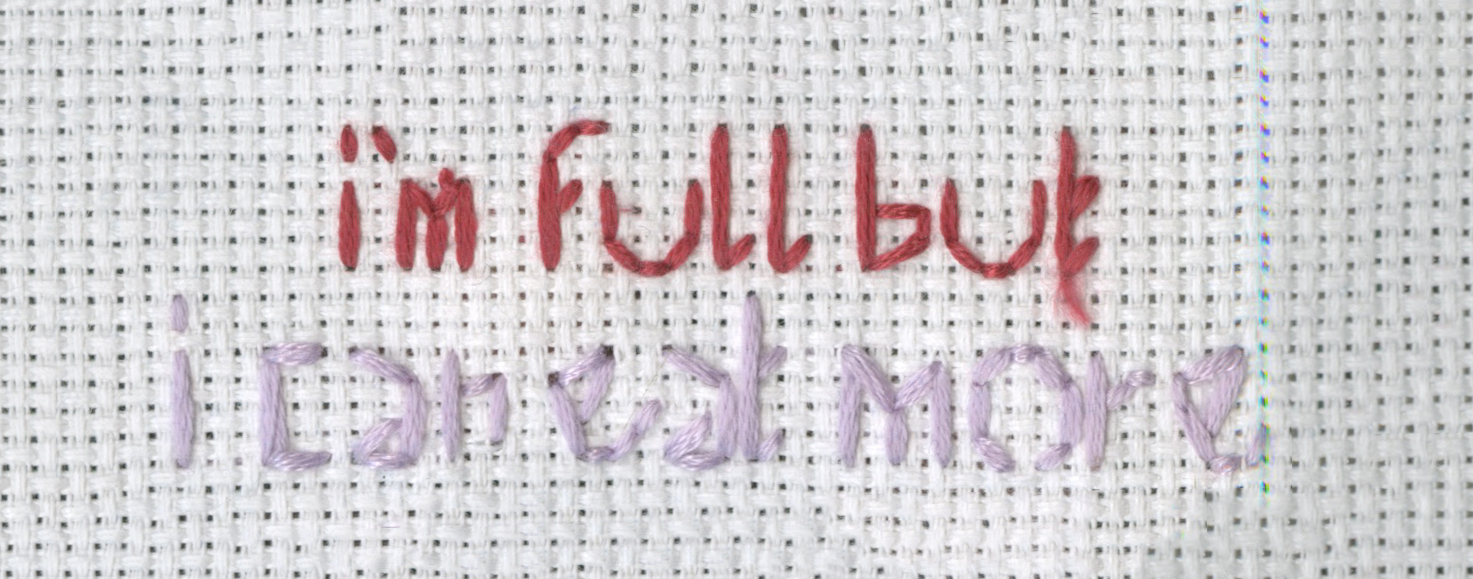 i'm full but
i can eat more